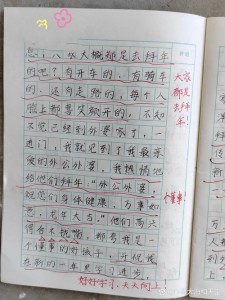 人大概都是去拜年
的吧？有开车的、有骑车
的、还有走路的，每个人
脸上都喜笑颜开的。不知
不觉已经到外婆家了，一
进门，我就见到了我最亲
爱的外公外婆，我
给他们拜年“外公外婆，
祝您们身体健康，万事如
意，龙年大吉。”他们
得合不拢嘴，都夸我是一
个懂事的好孩子，
在新的一年里学习进步。
大家
都是
去拜
年！
个懂事！
好好学习，天天向上！